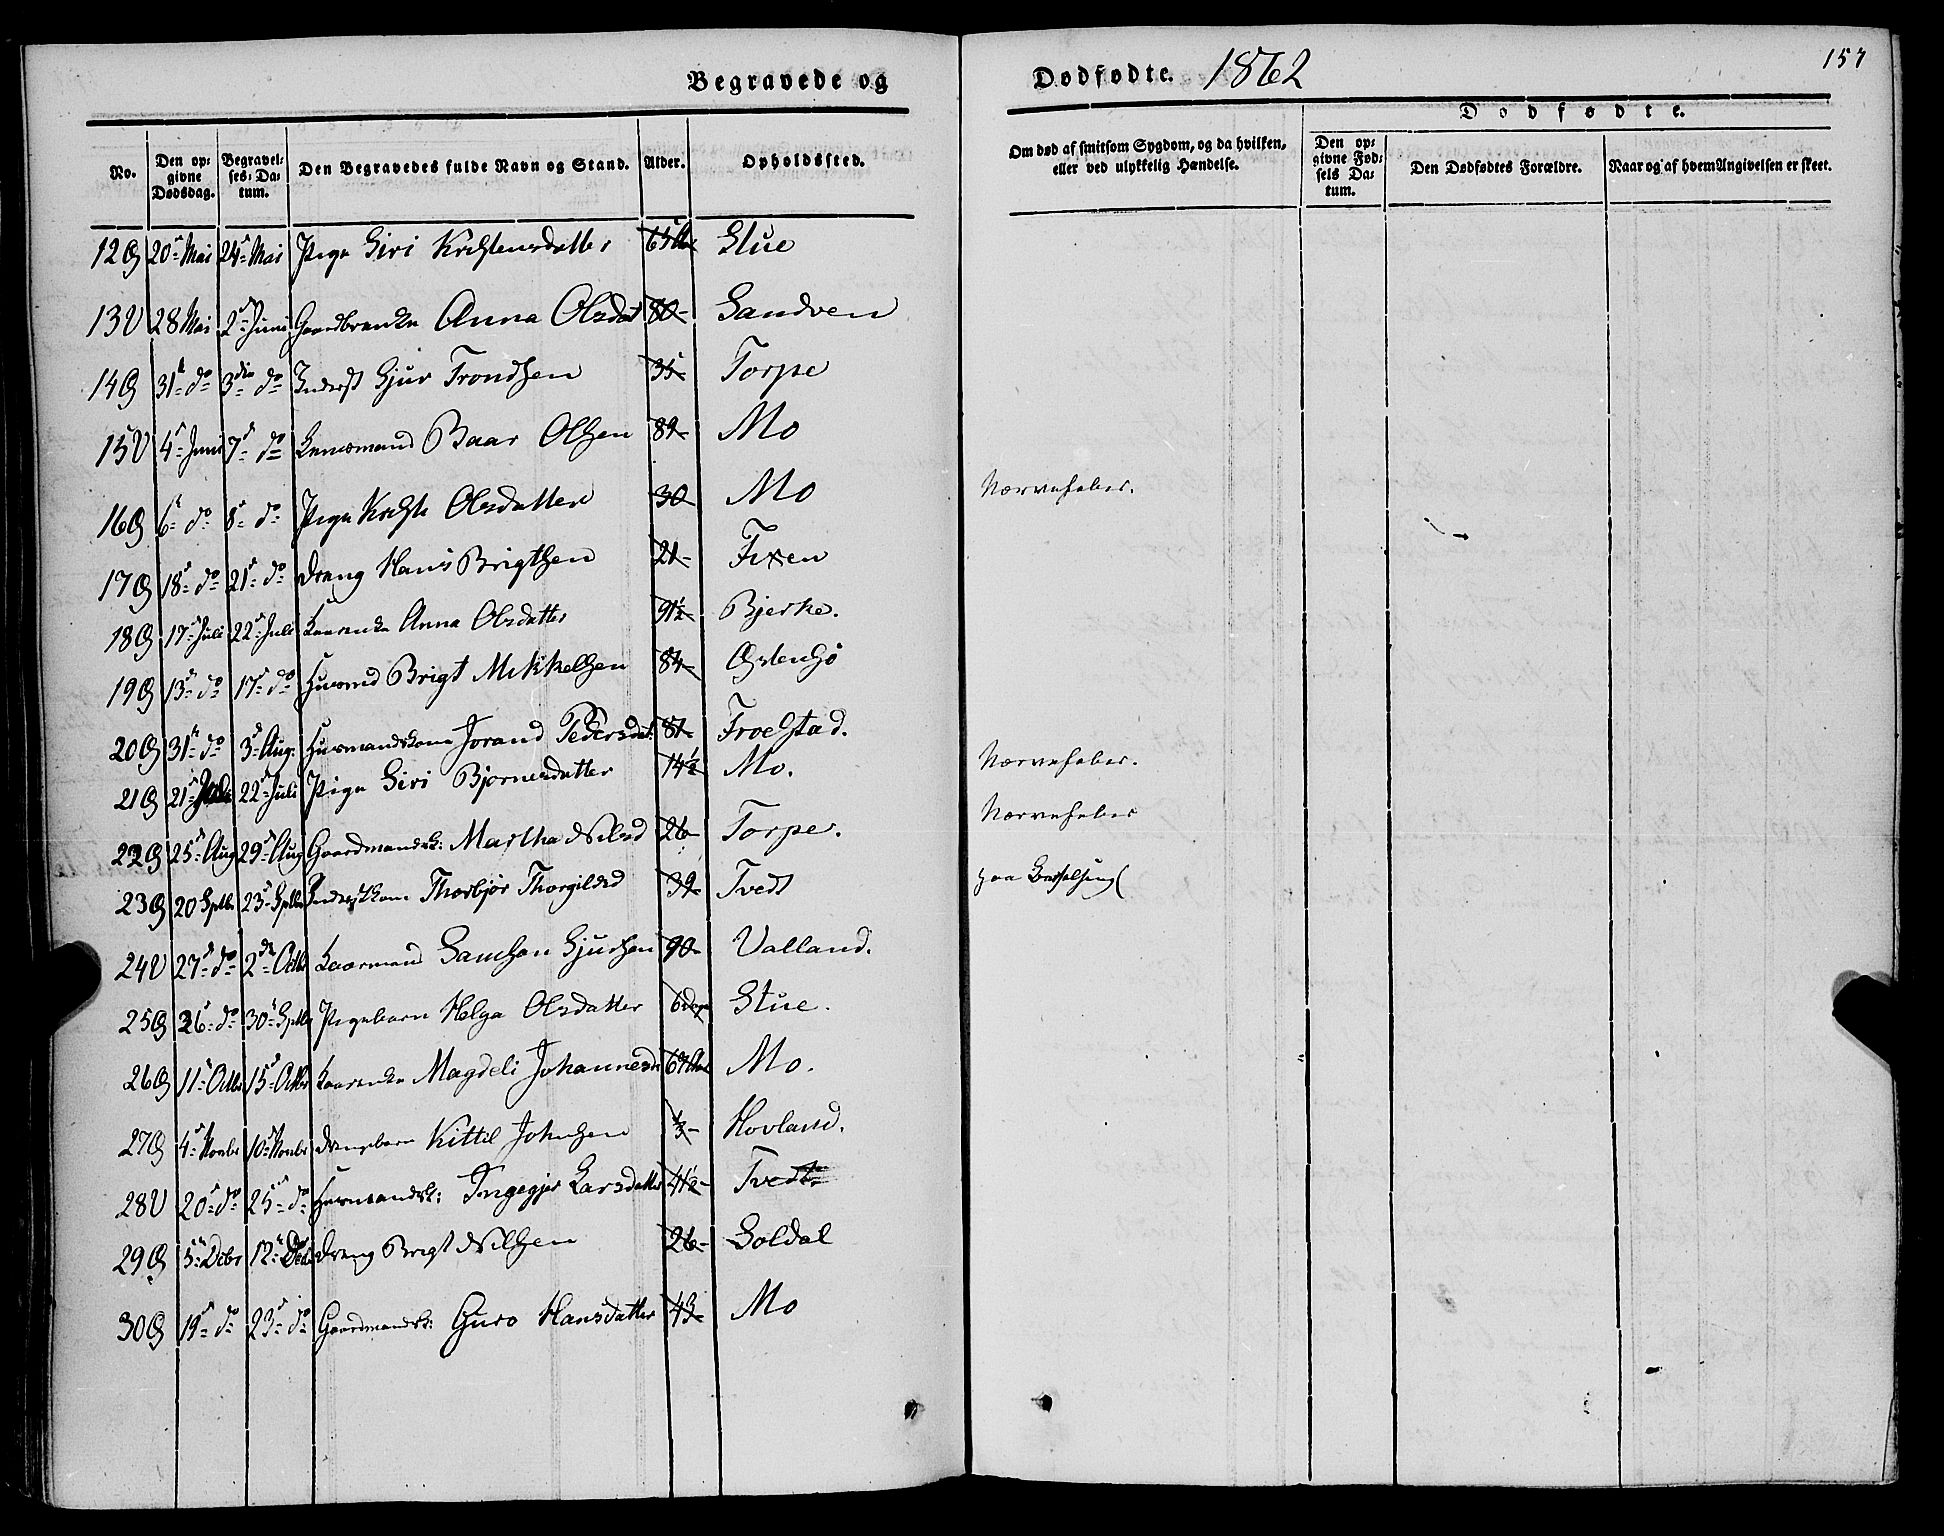 Begravede og Dødfødte. 1862 157
Dødfødte.
No. Den opgivne Dødsdag. Begravelses-Datum. Den Begravedes fulde Navn og Stand. Alder. Opholdssted. Om død af smitsom Sygdom, og da hvilken, eller ved ulykkelig Hændelse. Den opgivne Fødsels Datum. Den Dødfødtes Forældre. Naar og af hvem Angivelsen er skeet.
12 G 20de Mai 24de Mai Pige Siri Krістensdatter 65 Aar Stue
13 V 28 Mai 2den Juni Gaardbrenke Anna Olsdat 80- Sandven
14 G 31te do 3die do Inderst Sjur Trondsen 35- Torpe
15 V 4de Juni 7de do Lensmand Baar Olsen 89- Mo
16 G 6te do 8de do Pige Olsdatter 30- Mo Nervefeber.
17 G 18de do 21de do Dreng Hans Brigtsen 21- Fixen
18 G 17de Juli 22de Juli Kaarenke Anna Olsdatter 91½ Bjerke.
19 G 13de do 17de do Husmd Brigt Mikkelsen 84- Østensø
20 G 31te do 3de Aug. Husmandskone Jorand Pedersdat. 81- Froestad.
21 G 21de Juli 22de Juli Pige Siri Bjørnesdatter 14½ Mo. Nervefeber.
22 G 25de Aug 29de Aug Gaardmandsk: Martha Nilsd 26- Torpe. Nervefeber
23 G 20 Septbr 23de Septbr Inderstkone Thorbjør Thorgilsd 39- Tvedt paa Barselseng
24 V 27de do 2den Octbr Kaarmand Samson Sjursen 90- Valland.
25 G 26de do 30te Septbr Pigebarn Helga Olsdatter 6 dage Stue.
26 G 11te Octbr 15de Octbr Kaarenke Magdeli Johannesd 67 Aar Mo.
27 G 4de Novbr 10de Novbr Drengebarn Kittil Johnsen ⅓- Hovland.
28 V 20de do 25de do Husmandsk: Ingegjer Larsdatter 41½- Tvedt
29 G 5te Decbr 12te Decbr Dreng Brigt Nilsen 26- Soldal
30 G 19de do 23de do Gaardmandsk: Guro Hansdatter 43- Mo